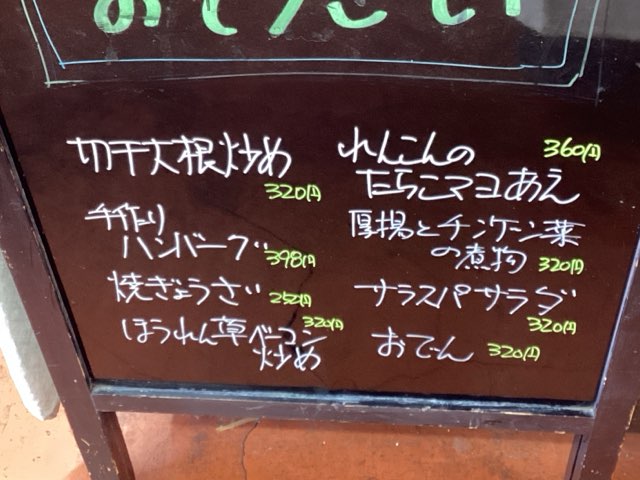 切干大根炒め
320円
手作り
ハンバーグ
398円
焼ぎょうざ 252円
ほうれん草ベーコン
炒め
320円
れんこんの 360円
たらこマヨあえ
厚揚とチンゲン菜
の煮物 320円
サラスパサラダ
320円
おでん 320円